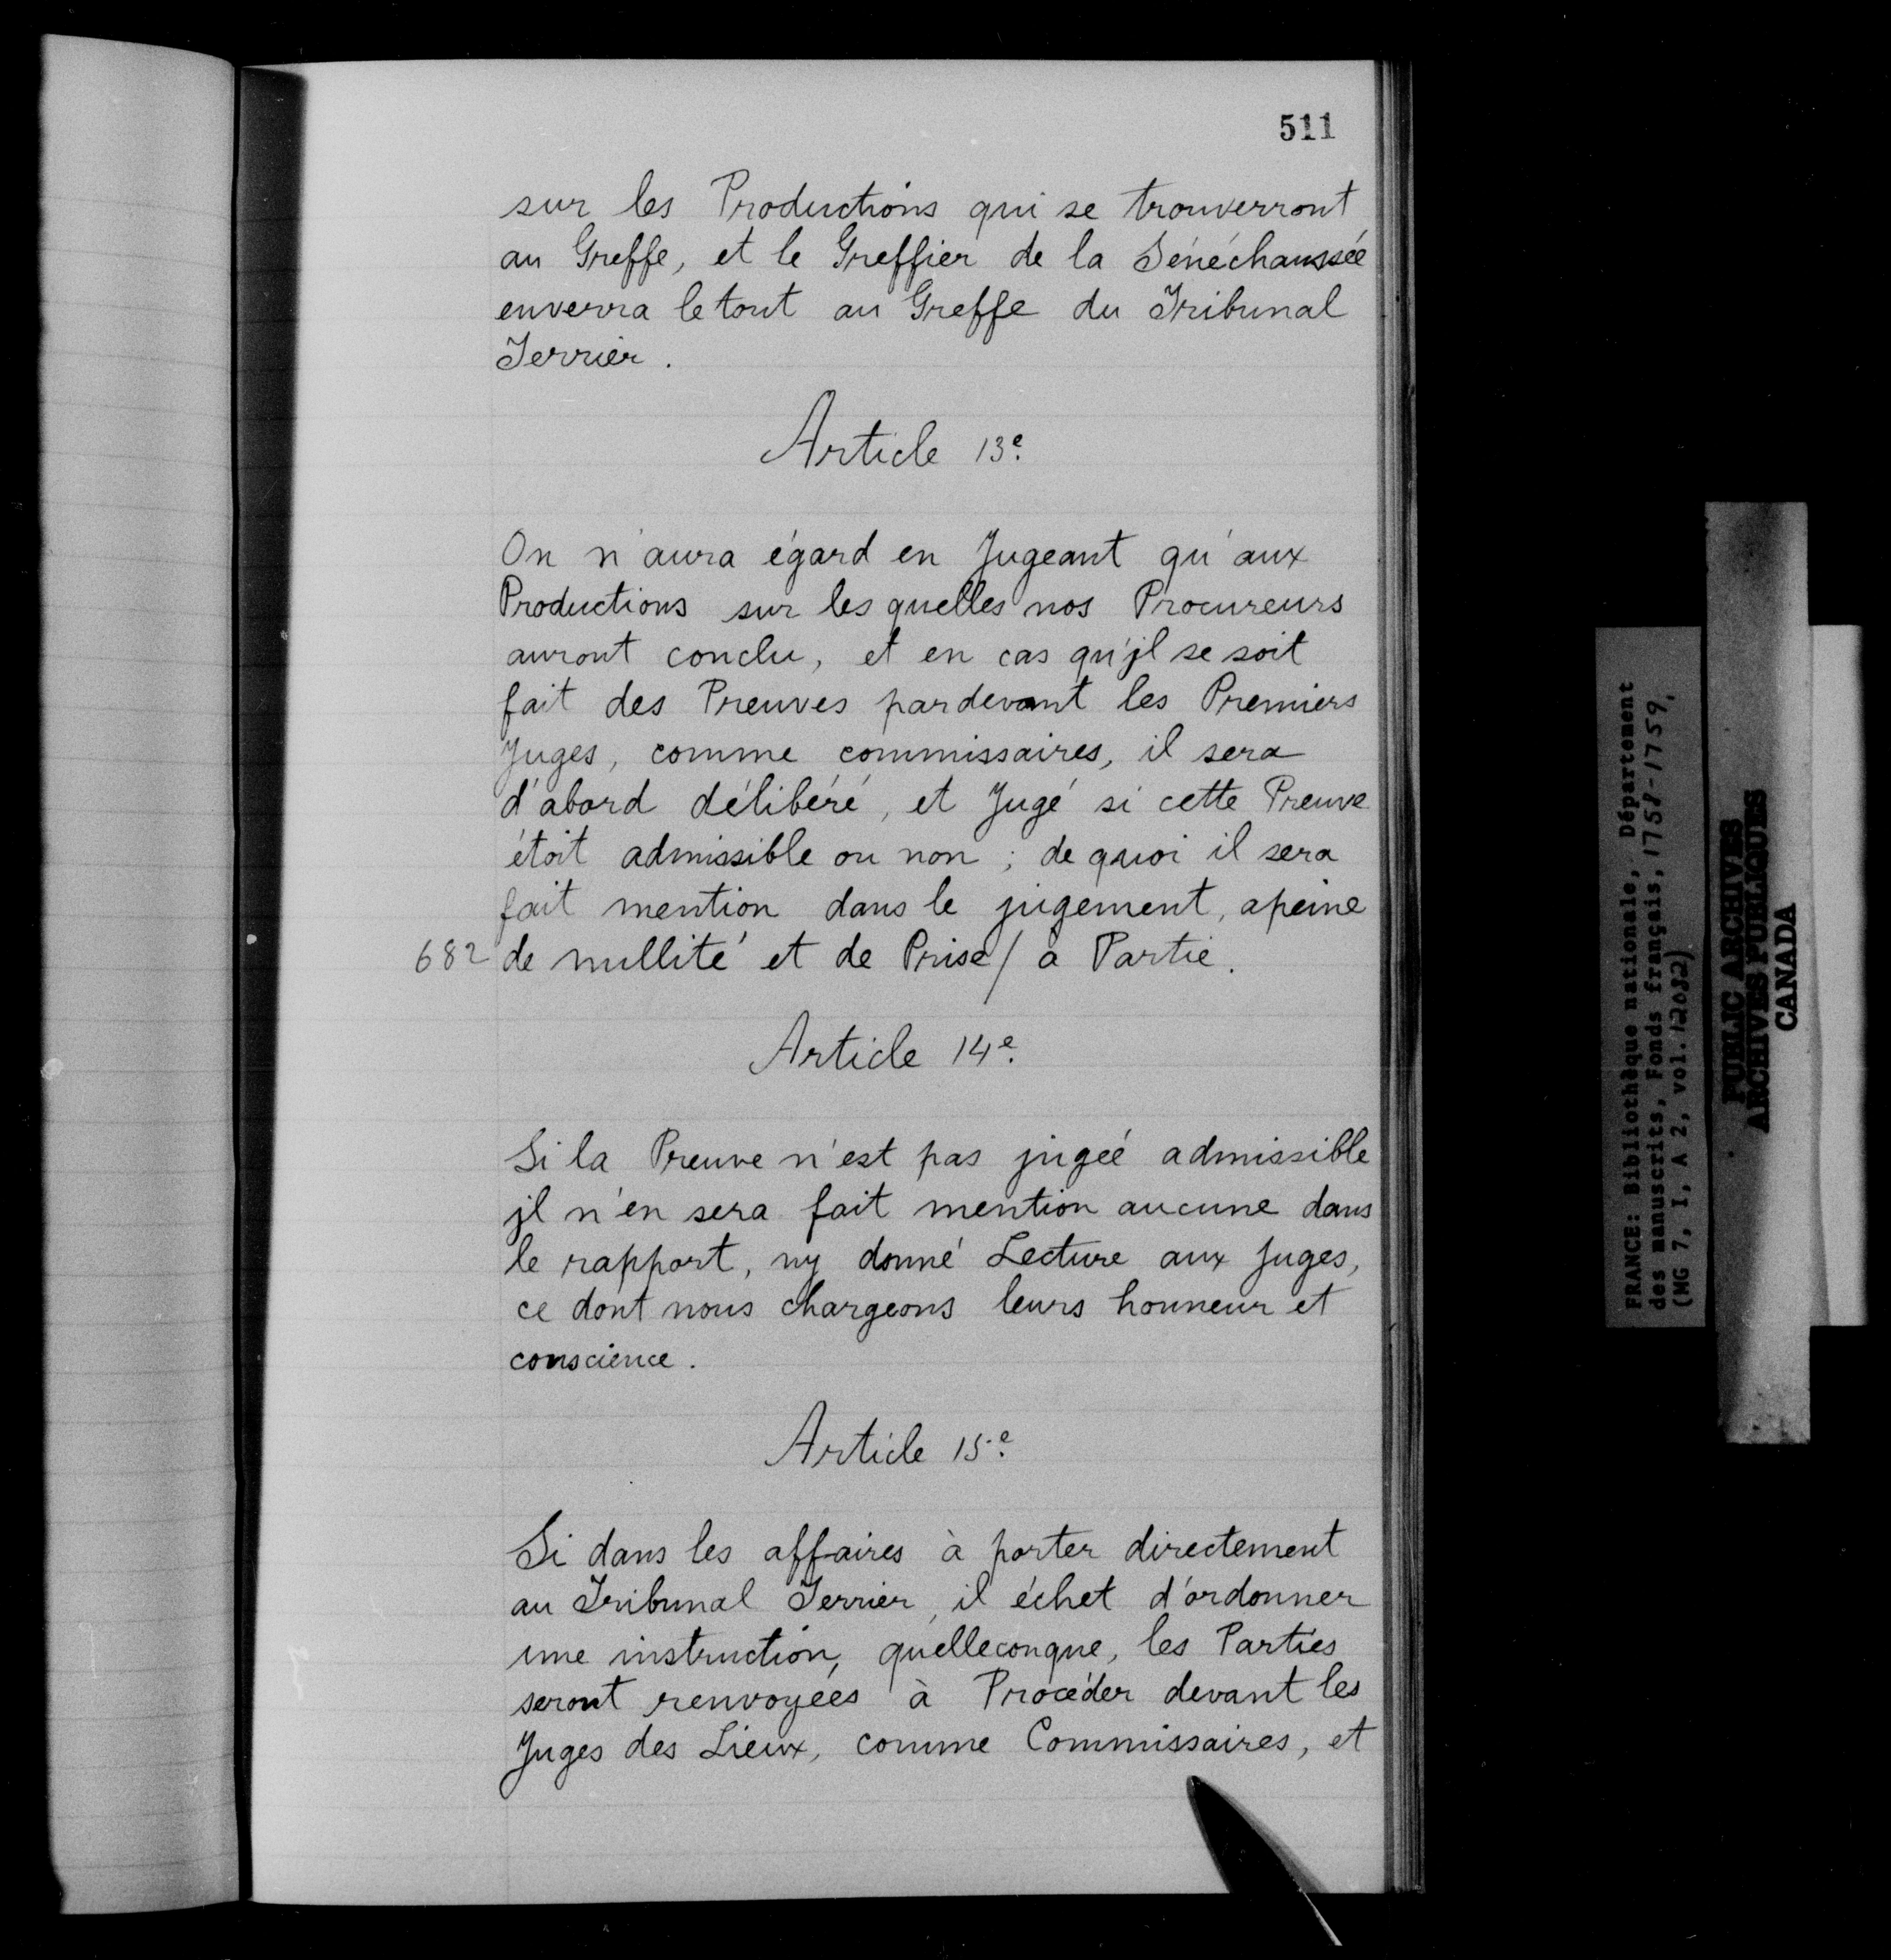 511
sur les Productions qui se trouverront
au Greffe, et le Greffier de la Sénéchaussée
enverra le tout au Greffe du Tribunal
Terrier.
Article 13e.
On n'aura égard en Jugeant qu'aux
Productions sur les quelles nos Procureurs
auront conclu, et en cas qu'jl se soit
fait des Preuves pardevant les Premiers
Juges, comme commissaires, il sera
d'abord délibéré, et Jugé si cette Preuve
étoit admissible ou non ; de quoi il sera
fait mention dans le jugement, apeine
682 de nullité et de Prise / à Partie.
Article 14e.
Si la Preuve n'est pas jugée admissible
jl n'en sera fait mention aucune dans
le rapport, ny donné Lecture aux Juges,
ce dont nous chargeons leurs honneur et
conscience.
Article 15e.
Si dans les affaires à porter directement
au Tribunal Terrier, il échet d'ordonner
une instruction, quelleconque, les Parties
seront renvoyées à Procéder devant les
Juges des Lieux, comme Commissaires, et
FRANCE: Bibliothèque nationale, Département
des manuscrits, Fonds français, 1758-1759,
(MG 7, I, A 2, vol. 12082)
PUBLIC ARCHIVES
ARCHIVES PUBLIQUES
CANADA